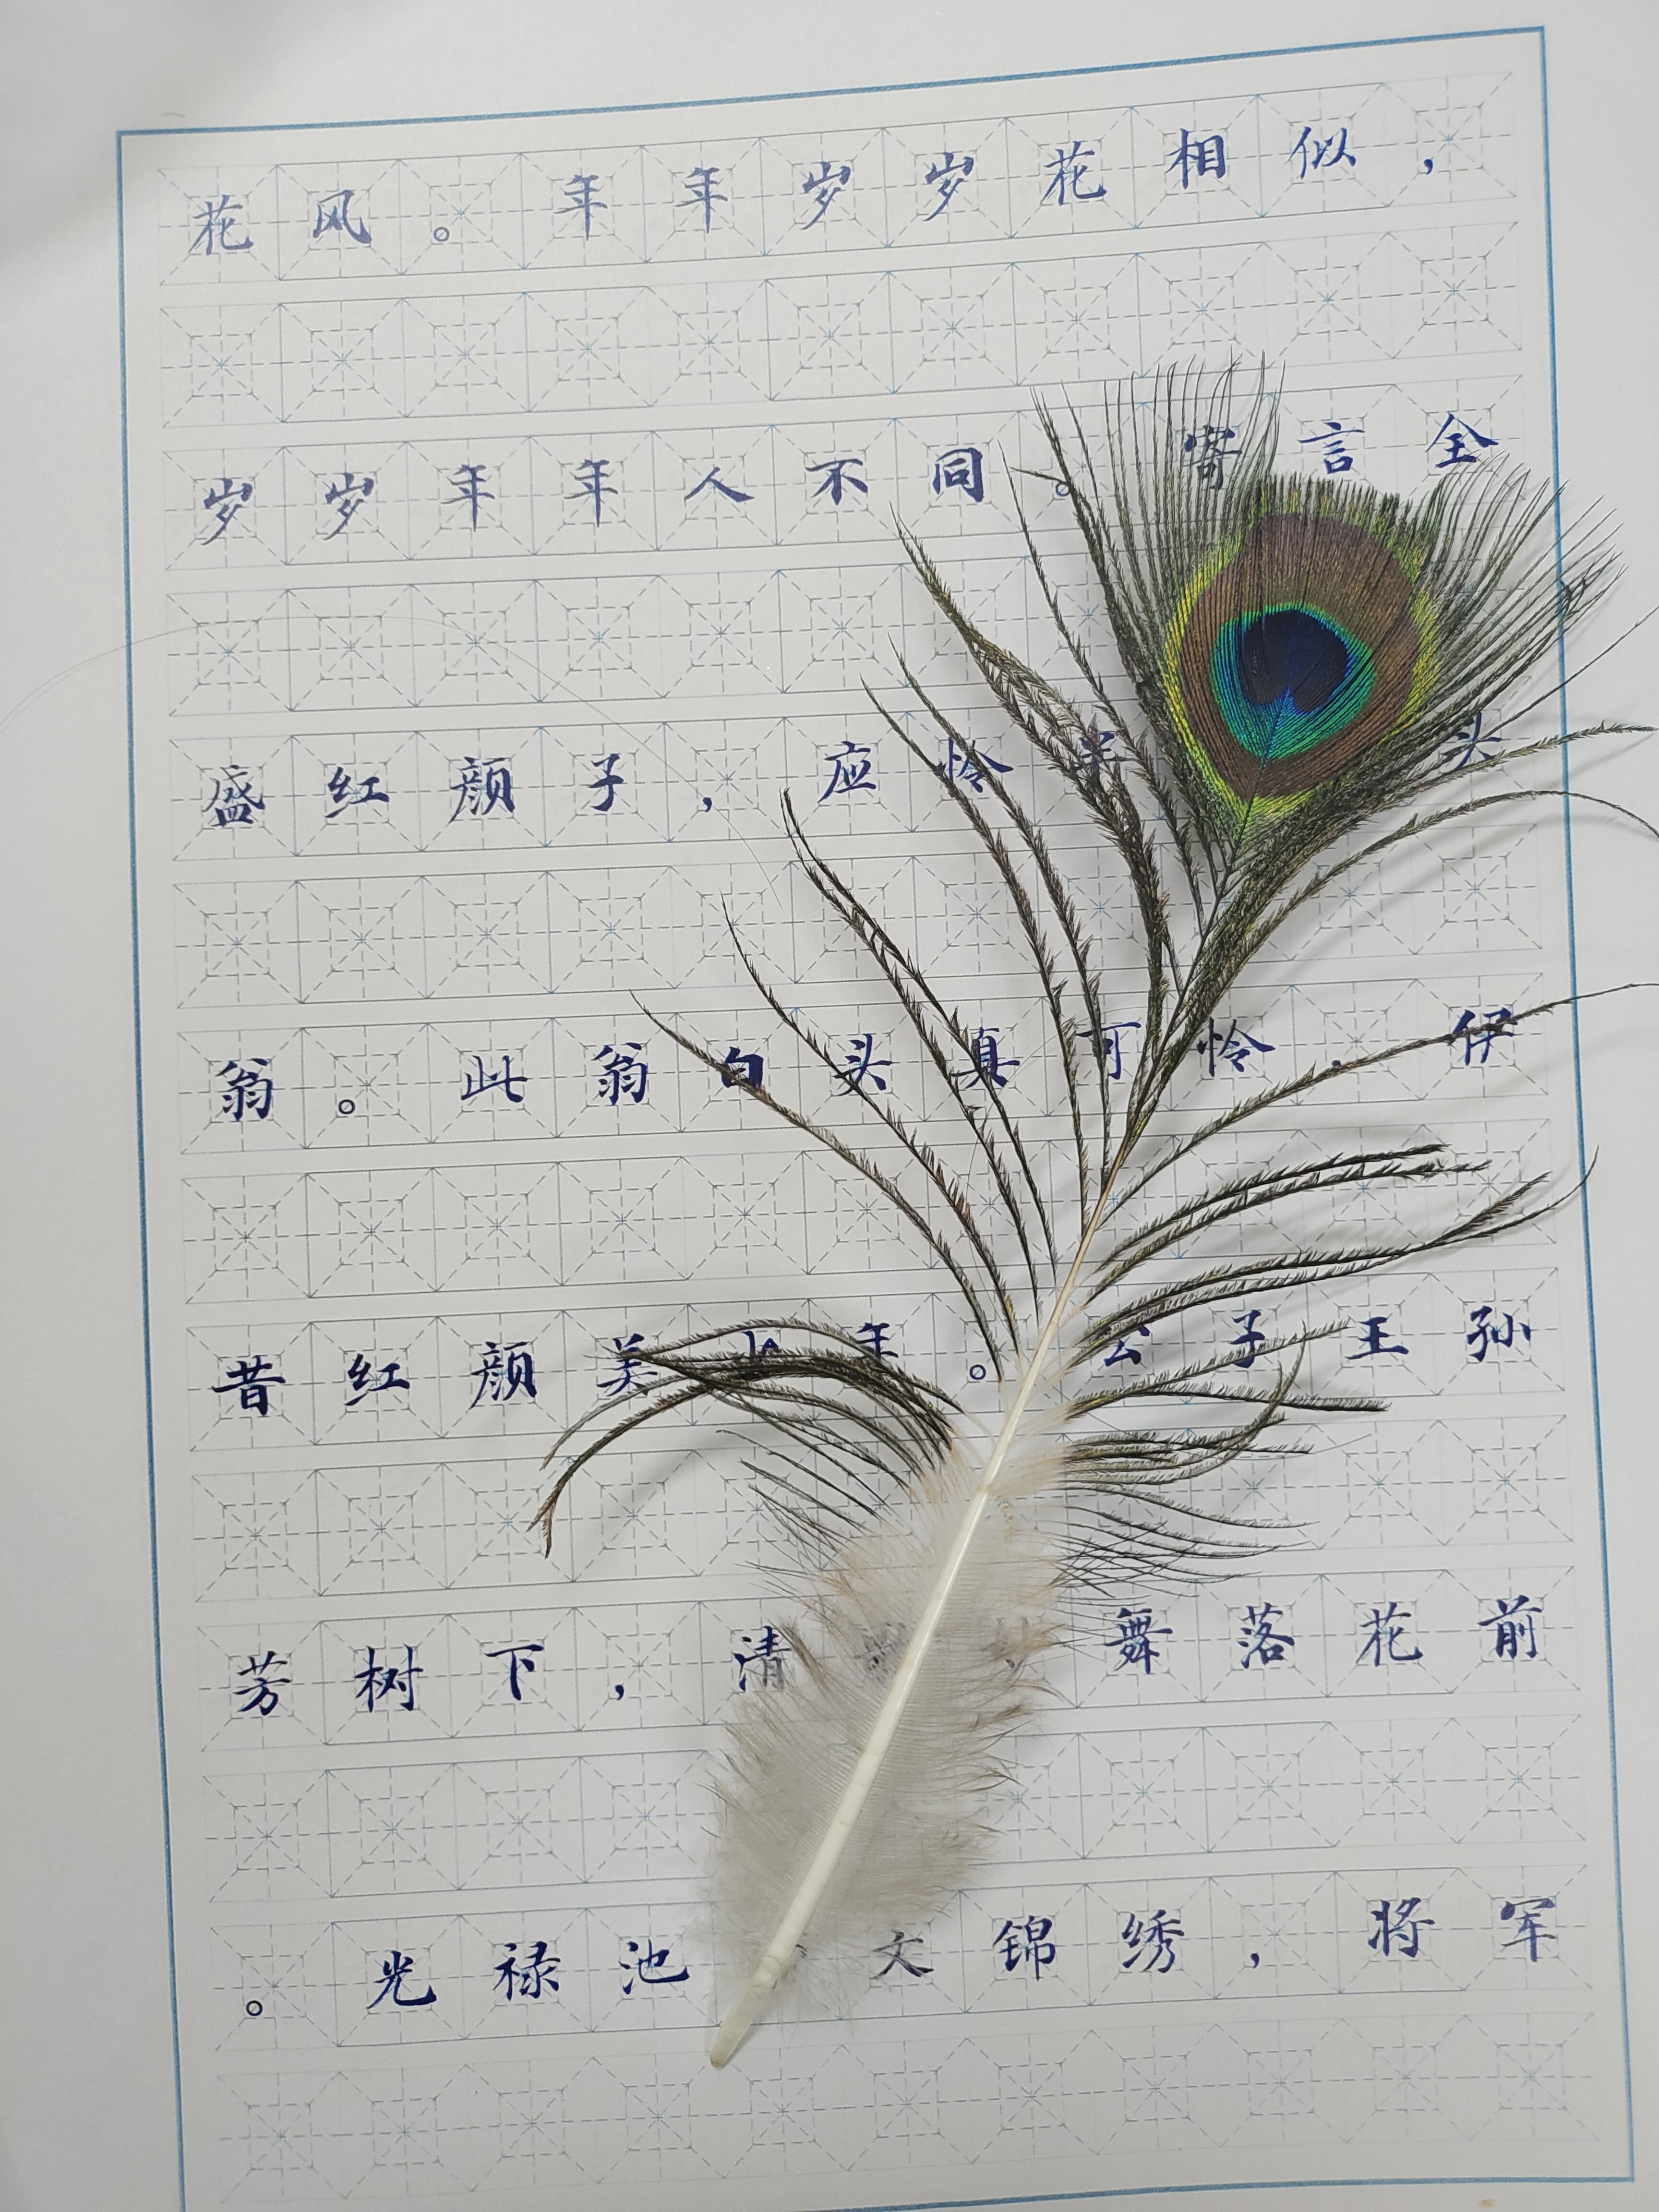 花风。年年岁岁花相似，
岁岁年年人不同。寄言全
盛红颜子，应怜半头
翁。此翁白头真可怜，伊
昔红颜美少年。公子王孙
芳树下，清舞落花前
。光禄池文锦绣，将军